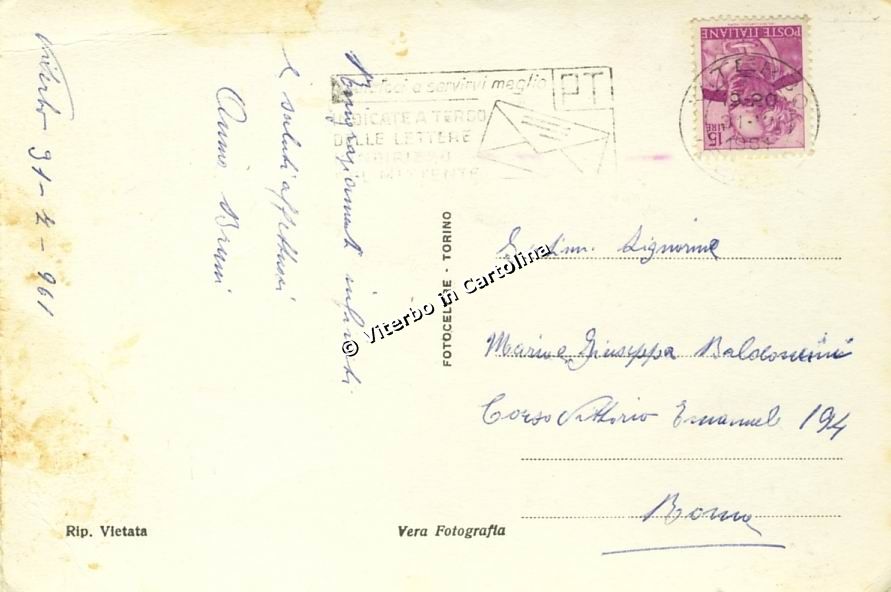 Viterbo 31-7-961
Ringraziamenti infiniti
e saluti affettuosi
Bruni
aiutateci a servirvi meglio
PT
INDICATE A TERGO
DELLE LETTERE
INDIRIZZO
DEL MITTENTE
VITERBO
9-20
POSTE ITALIANE
LIRE 15
FOTOCELERE - TORINO
© Viterbo in Cartolina
Gentilm. Signorine
Maria e Giuseppa Baldoncini
Corso Vittorio Emanuele 194
Roma
Rip. Vietata
Vera Fotografia